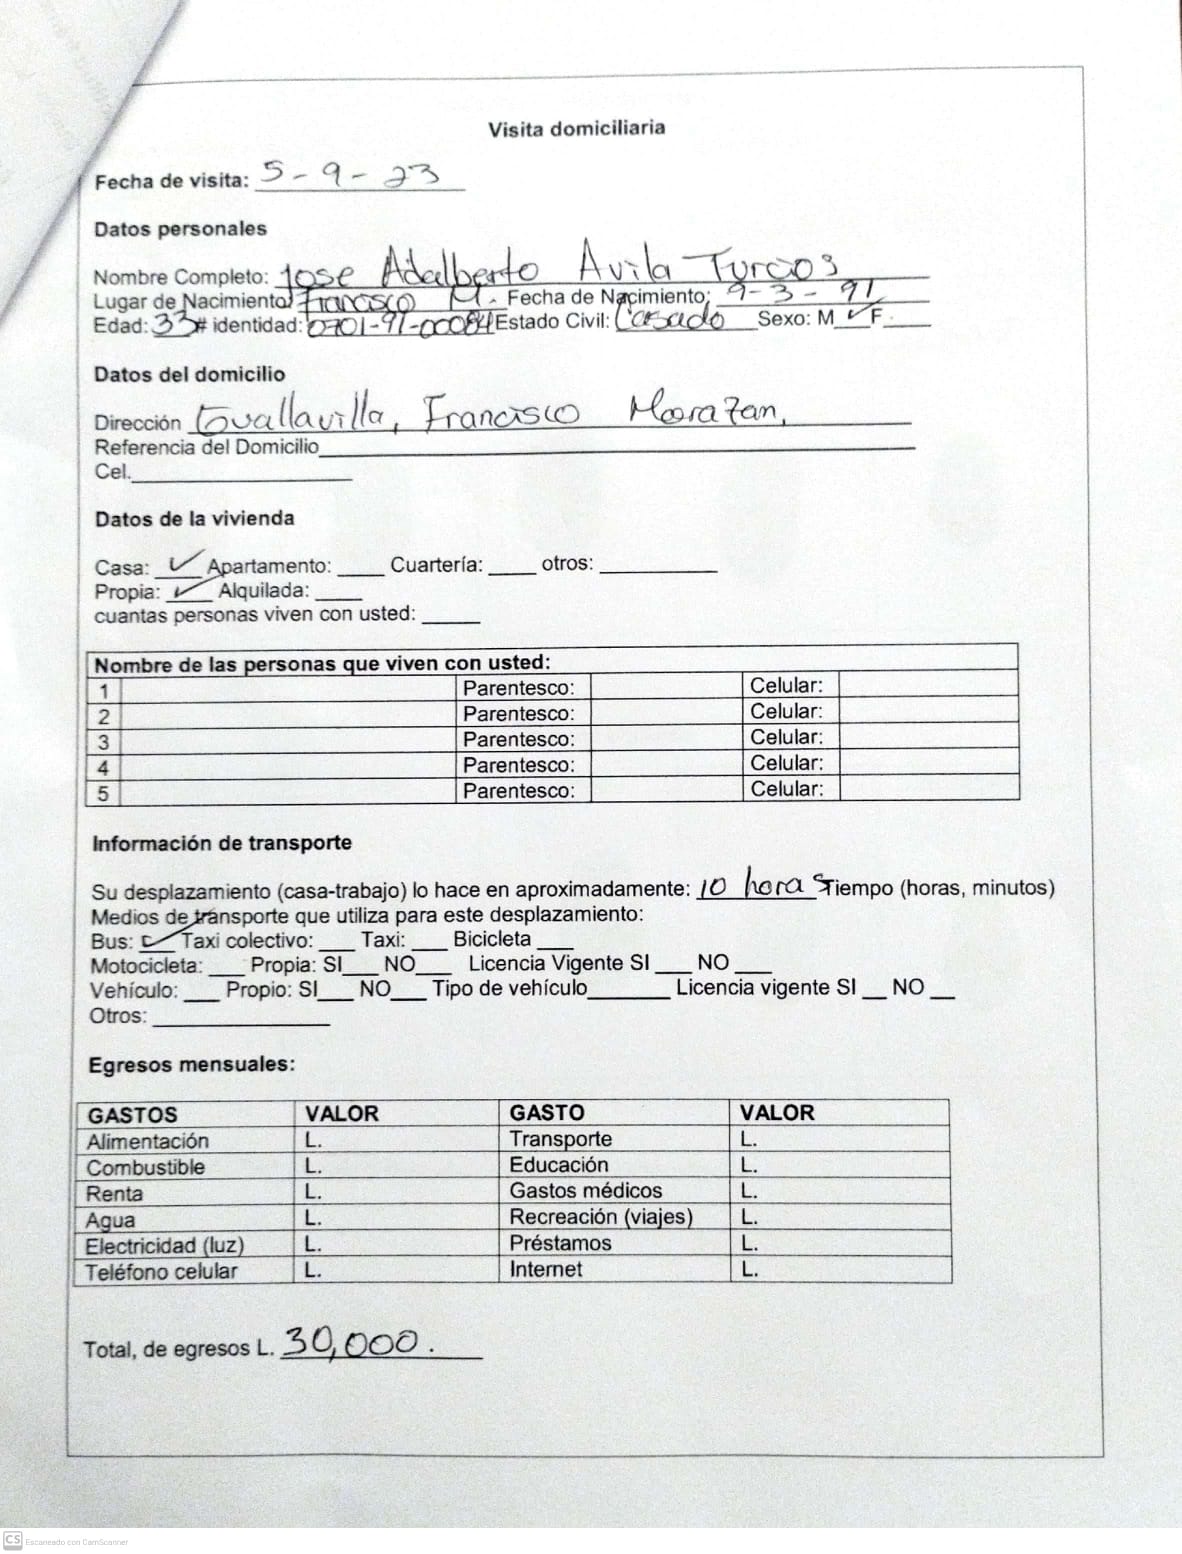 Visita domiciliaria
Fecha de visita: 5-9-23
Datos personales
Nombre Completo: Jose Adalberto Avila Turcios
Lugar de Nacimiento Francisco M. Fecha de Nacimiento: 9-3-91
Edad: 33 # identidad: 0701-91-00084 Estado Civil: Casado Sexo: M ✓ F
Datos del domicilio
Dirección Guallavilla, Francisco Morazan,
Referencia del Domicilio
Cel.
Datos de la vivienda
Casa: ✓ Apartamento: ____ Cuartería: ____ otros: ____
Propia: ✓ Alquilada: ____
cuantas personas viven con usted: ____
Nombre de las personas que viven con usted:
1 Parentesco: Celular:
2 Parentesco: Celular:
3 Parentesco: Celular:
4 Parentesco: Celular:
5 Parentesco: Celular:
Información de transporte
Su desplazamiento (casa-trabajo) lo hace en aproximadamente: 10 horas Tiempo (horas, minutos)
Medios de tránsporte que utiliza para este desplazamiento:
Bus: ✓ Taxi colectivo: ____ Taxi: ____ Bicicleta ____
Motocicleta: ____ Propia: SI____ NO____ Licencia Vigente SI ____ NO ____
Vehículo: ____ Propio: SI____ NO____ Tipo de vehículo____ Licencia vigente SI __ NO __
Otros: ____
Egresos mensuales:
GASTOS VALOR GASTO VALOR
Alimentación L. Transporte L.
Combustible L. Educación L.
Renta L. Gastos médicos L.
Agua L. Recreación (viajes) L.
Electricidad (luz) L. Préstamos L.
Teléfono celular L. Internet L.
Total, de egresos L. 30,000.
CS Escaneado con CamScanner